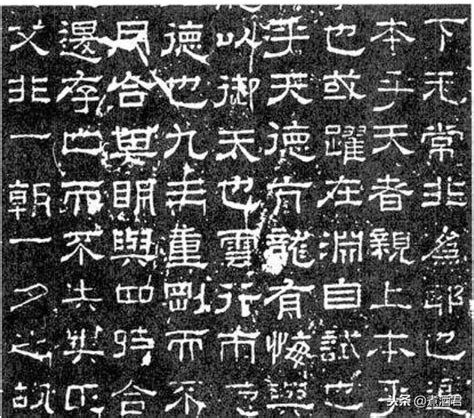 下无常非為邪也進
本乎天者親上本乎
也或躍在淵自試也
乎天德亢龍有悔與
以御天也雲行雨
德也九三重剛而不
月合其明與四時合
退存亡而不失其正
父非一朝一夕之故
头条 @煮酒君